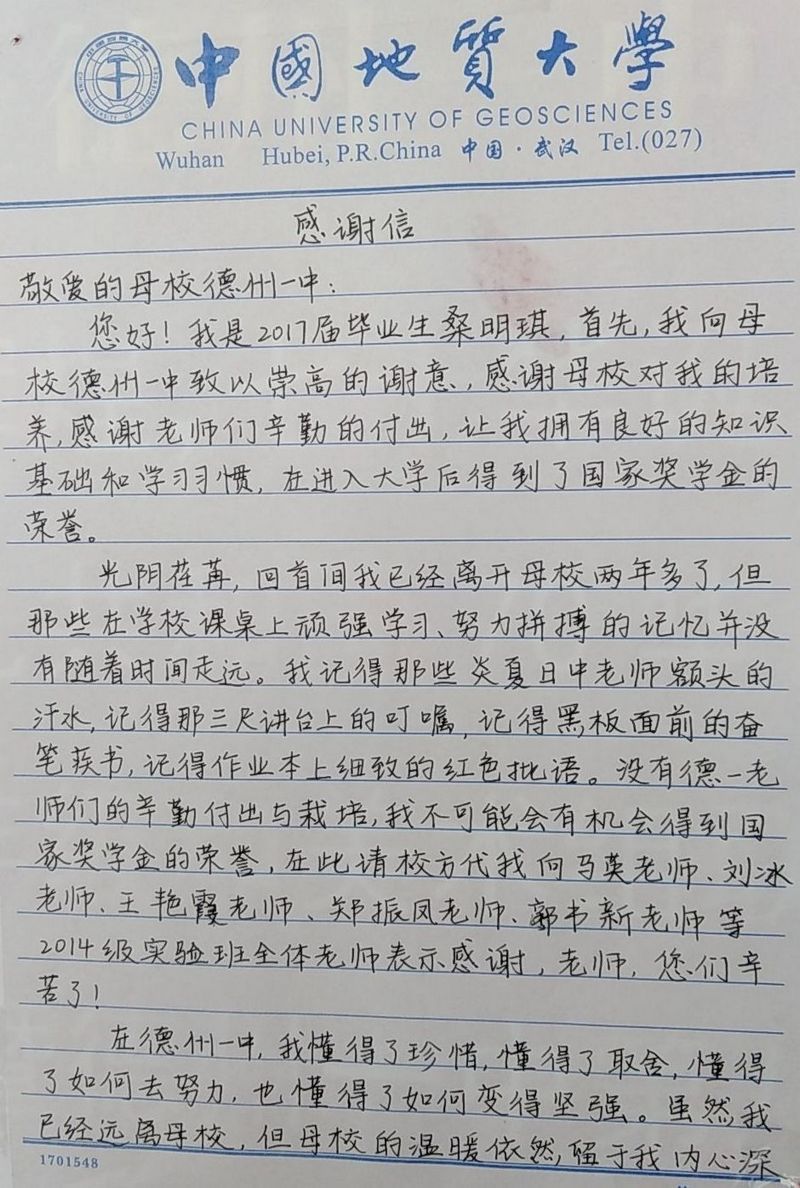 中國地質大學
CHINA UNIVERSITY OF GEOSCIENCES
Wuhan Hubei, P.R.China 中国·武汉 Tel.(027)
感谢信
敬爱的母校德州一中：
您好！我是2017届毕业生桑明琪，首先，我向母
校德州一中致以崇高的谢意，感谢母校对我的培
养，感谢老师们辛勤的付出，让我拥有良好的知识
基础和学习习惯，在进入大学后得到了国家奖学金的
荣誉。
光阴荏苒，回首间我已经离开母校两年多了，但
那些在学校课桌上顽强学习、努力拼搏的记忆并没
有随着时间走远。我记得那些炎夏日中老师额头的
汗水，记得那三尺讲台上的叮嘱，记得黑板面前的奋
笔疾书，记得作业本上细致的红色批语。没有德一老
师们的辛勤付出与栽培，我不可能会有机会得到国
家奖学金的荣誉，在此请校方代我向马英老师、刘冰
老师、王艳霞老师、郑振凤老师、郭书新老师等
2014级实验班全体老师表示感谢，老师，您们辛
苦了！
在德州一中，我懂得了珍惜，懂得了取舍，懂得
了如何去努力，也懂得了如何变得坚强。虽然我
已经远离母校，但母校的温暖依然，留于我内心深
1701548